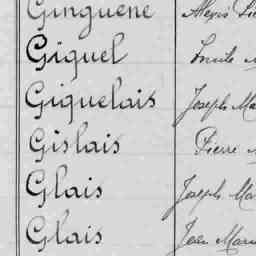 Ginguené Alexis
Giquel Emile
Giquelais Joseph Ma
Gislais Pierre
Glais Joseph Mar
Glais Jean Marie